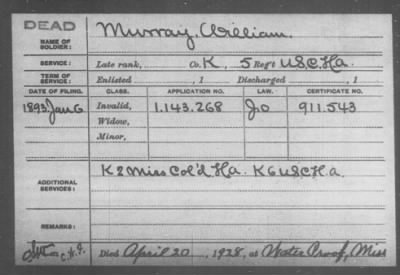 DEAD
NAME OF SOLDIER: Murray, William.
SERVICE: Late rank, Co. K, 5 Reg't U.S.C.H.a.
TERM OF SERVICE: Enlisted , 1 Discharged , 1
DATE OF FILING. CLASS. APPLICATION NO. LAW. CERTIFICATE NO.
1893. Jan 6 Invalid, 1.143.268 911.543
Widow,
Minor,
ADDITIONAL SERVICES: K 2 Miss Col'd H.a. K 6 U.S.C.H.a.
REMARKS:
Died April 20, 1928, at Water Proof, Miss